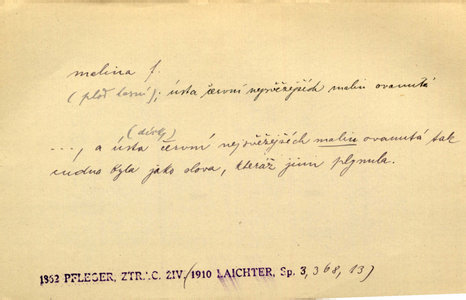 malina f.
(plod lesní); ústa červní nejsvěžejších malin ovanutá
(dívky)
..., a ústa červní nejsvěžejších malin ovanutá tak
cudna byla jako slova, kteráž jimi plynula.
1862 PFLEGER, ZTRAC. ŽIV. (1910 LAICHTER, Sp. 3, 368, 13)